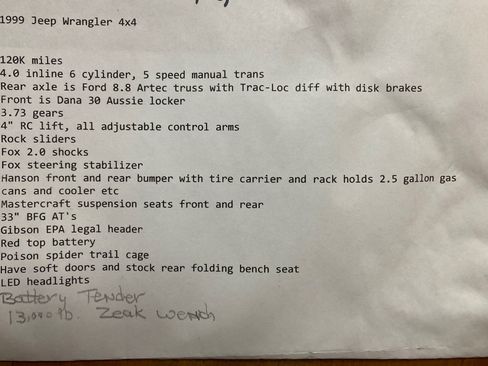 1999 Jeep Wrangler 4x4
120K miles
4.0 inline 6 cylinder, 5 speed manual trans
Rear axle is Ford 8.8 Artec truss with Trac-Loc diff with disk brakes
Front is Dana 30 Aussie locker
3.73 gears
4" RC lift, all adjustable control arms
Rock sliders
Fox 2.0 shocks
Fox steering stabilizer
Hanson front and rear bumper with tire carrier and rack holds 2.5 gallon gas
cans and cooler etc
Mastercraft suspension seats front and rear
33" BFG AT's
Gibson EPA legal header
Red top battery
Poison spider trail cage
Have soft doors and stock rear folding bench seat
LED headlights
Battery Tender
13,000 lb. Zeak wench